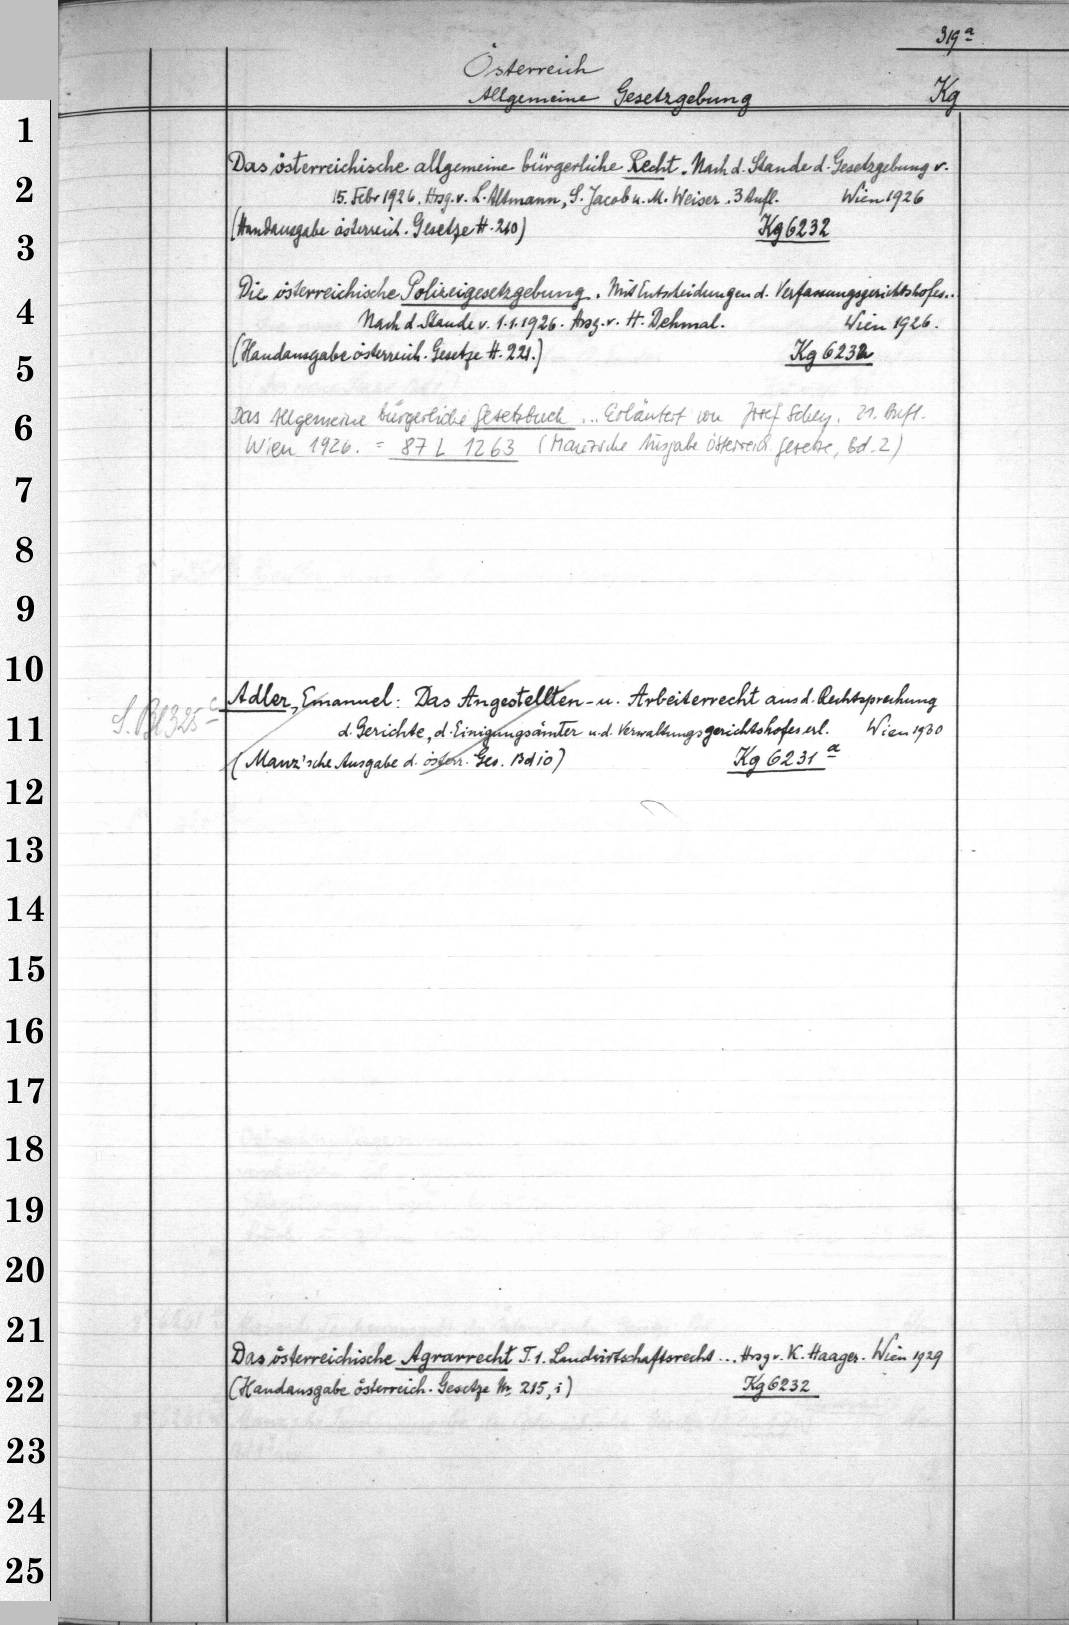 319a
Österreich
Allgemeine Gesetzgebung Kg
1
Das österreichische allgemeine bürgerliche Recht. Nach d. Stande d. Gesetzgebung v.
2
15. Febr 1926. Hrsg. v. L. Altmann, S. Jacob u. M. Weiser. 3 Aufl. Wien 1926
3
(Handausgabe österreich. Gesetze H. 210) Kg 6232
Die österreichische Polizeigesetzgebung. Mit Entscheidungen d. Verfassungsgerichtshofes..
4
Nach d. Stande v. 1.1.1926. Hrsg. v. H. Dehmal. Wien 1926.
5
(Handausgabe österreich. Gesetze H. 221.) Kg 6232
6
Das Allgemeine bürgerliche Gesetzbuch ... Erläutert von Josef Schey. 21. Aufl.
Wien 1926. = 87 L 1263 (Manzsche Ausgabe österreich. Gesetze, Bd. 2)
7
8
9
10
S. Bl 325 c Adler, Emanuel: Das Angestellten- u. Arbeiterrecht aus d. Rechtsprechung
11
d. Gerichte, d. Einigungsämter u. d. Verwaltungsgerichtshofes erl. Wien 1930
(Manz'sche Ausgabe d. österr. Ges. Bd 10) Kg 6231 a
12
13
14
15
16
17
18
19
20
21
Das österreichische Agrarrecht T. 1. Landwirtschaftsrecht ... Hrsg v. K. Haager. Wien 1929
22
(Handausgabe österreich. Gesetze Nr 215, i) Kg 6232
23
24
25